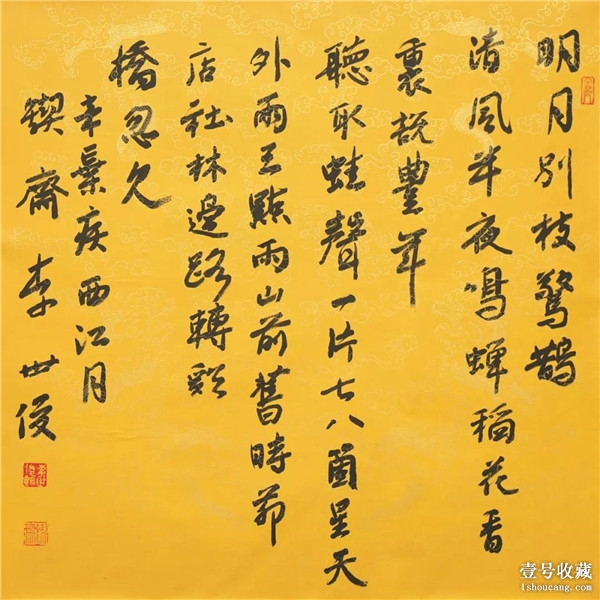 明月別枝驚鵲
清風半夜鳴蟬稻花香
裏說豐年
聽取蛙聲一片七八箇星天
外兩三點雨山前舊時茆
店社林邊路轉谿
橋忽見
辛棄疾西江月
鍥齋 李世俊
壹号收藏
1shoucang.com